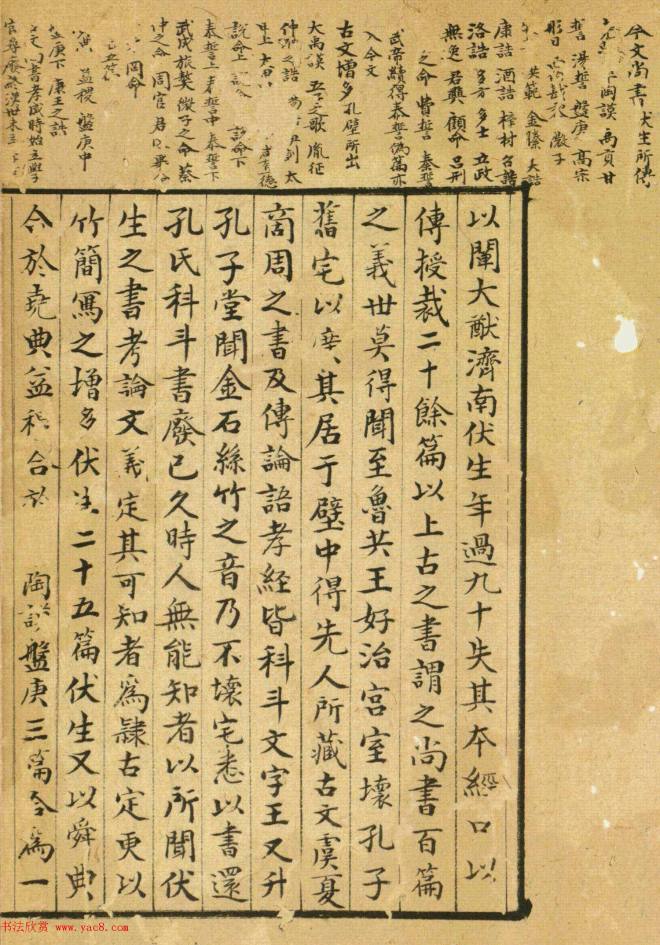 今文尚書 伏生所傳
禹貢 甘
誓 湯誓 盤庚 高宗
肜日 微子
洪範 金縢 大誥
康誥 酒誥 梓材 召誥
洛誥 多方 多士 立政
無逸 君奭 顧命 呂刑
之命 費誓 秦誓
武帝續得泰誓偽篇亦
入今文
古文增多孔壁所出
大禹謨 五子之歌 胤征
仲虺之誥
說命上 說命下
泰誓上 泰誓中 泰誓下
武成 旅獒 微子之命 蔡
仲之命 周官 君
冏命
益稷 盤庚中
盤庚下 康王之誥
以闡大猷濟南伏生年過九十失其本經口以
傳授裁二十餘篇以上古之書謂之尚書百篇
之義世莫得聞至魯共王好治宮室壞孔子
舊宅以廣其居于壁中得先人所藏古文虞夏
商周之書及傳論語孝經皆科斗文字王又升
孔子堂聞金石絲竹之音乃不壞宅悉以書還
孔氏科斗書廢已久時人無能知者以所聞伏
生之書考論文義定其可知者為隸古定更以
竹簡寫之增多伏生二十五篇伏生又以舜典
合於堯典益稷合於 陶謨盤庚三篇合為一
书法欣赏 www.yac8.com